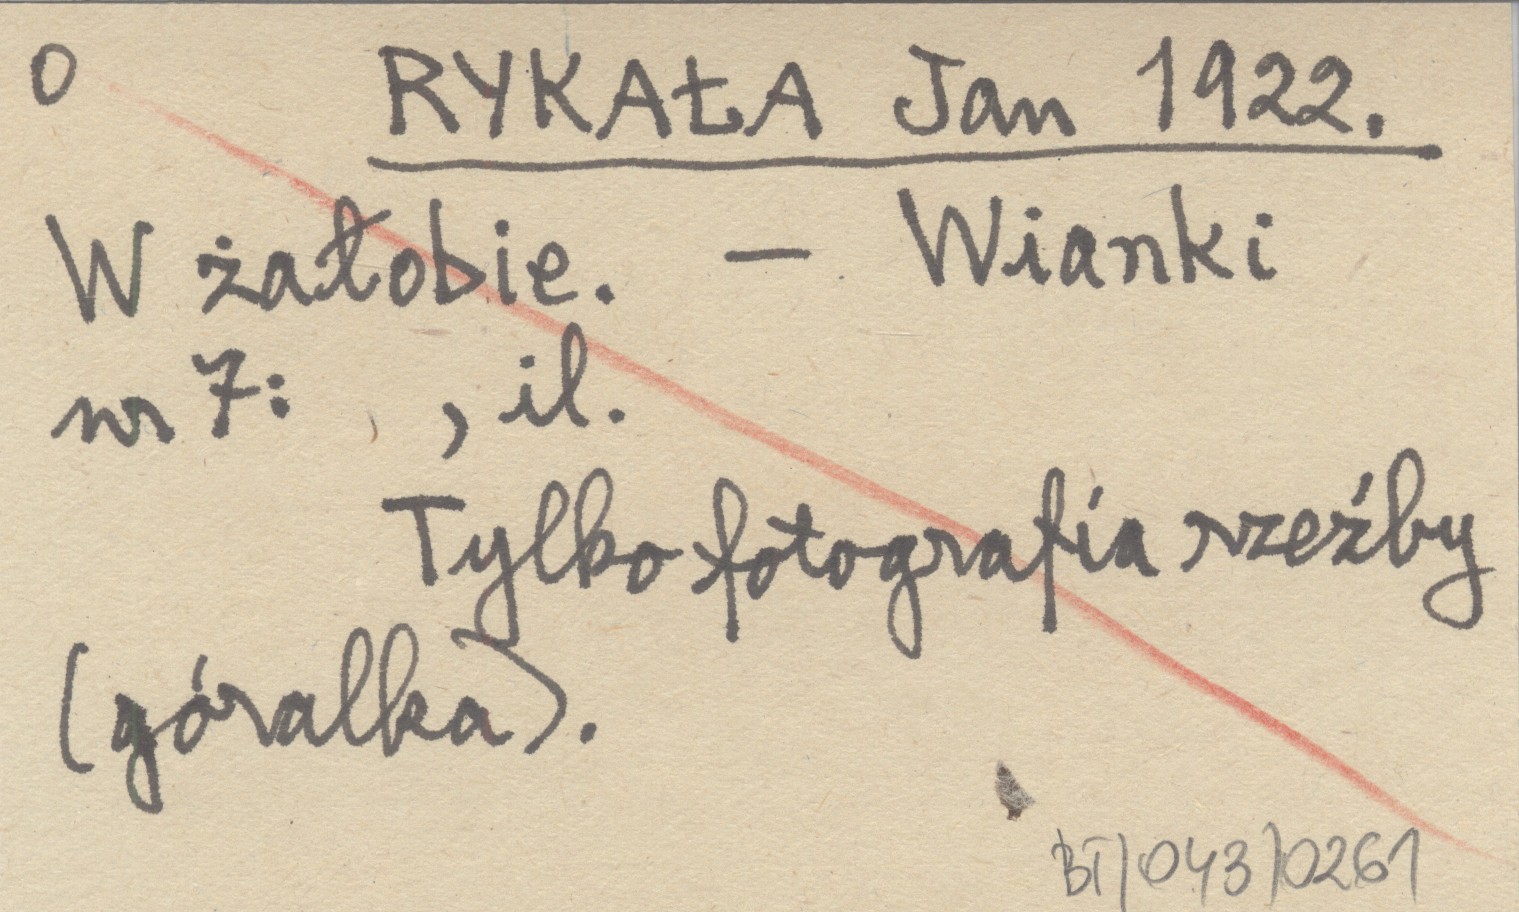 O RYKAŁA Jan 1922.
W żałobie. – Wianki
nr 7: , il.
Tylko fotografia rzeźby
(góralka).
BT/043/0261